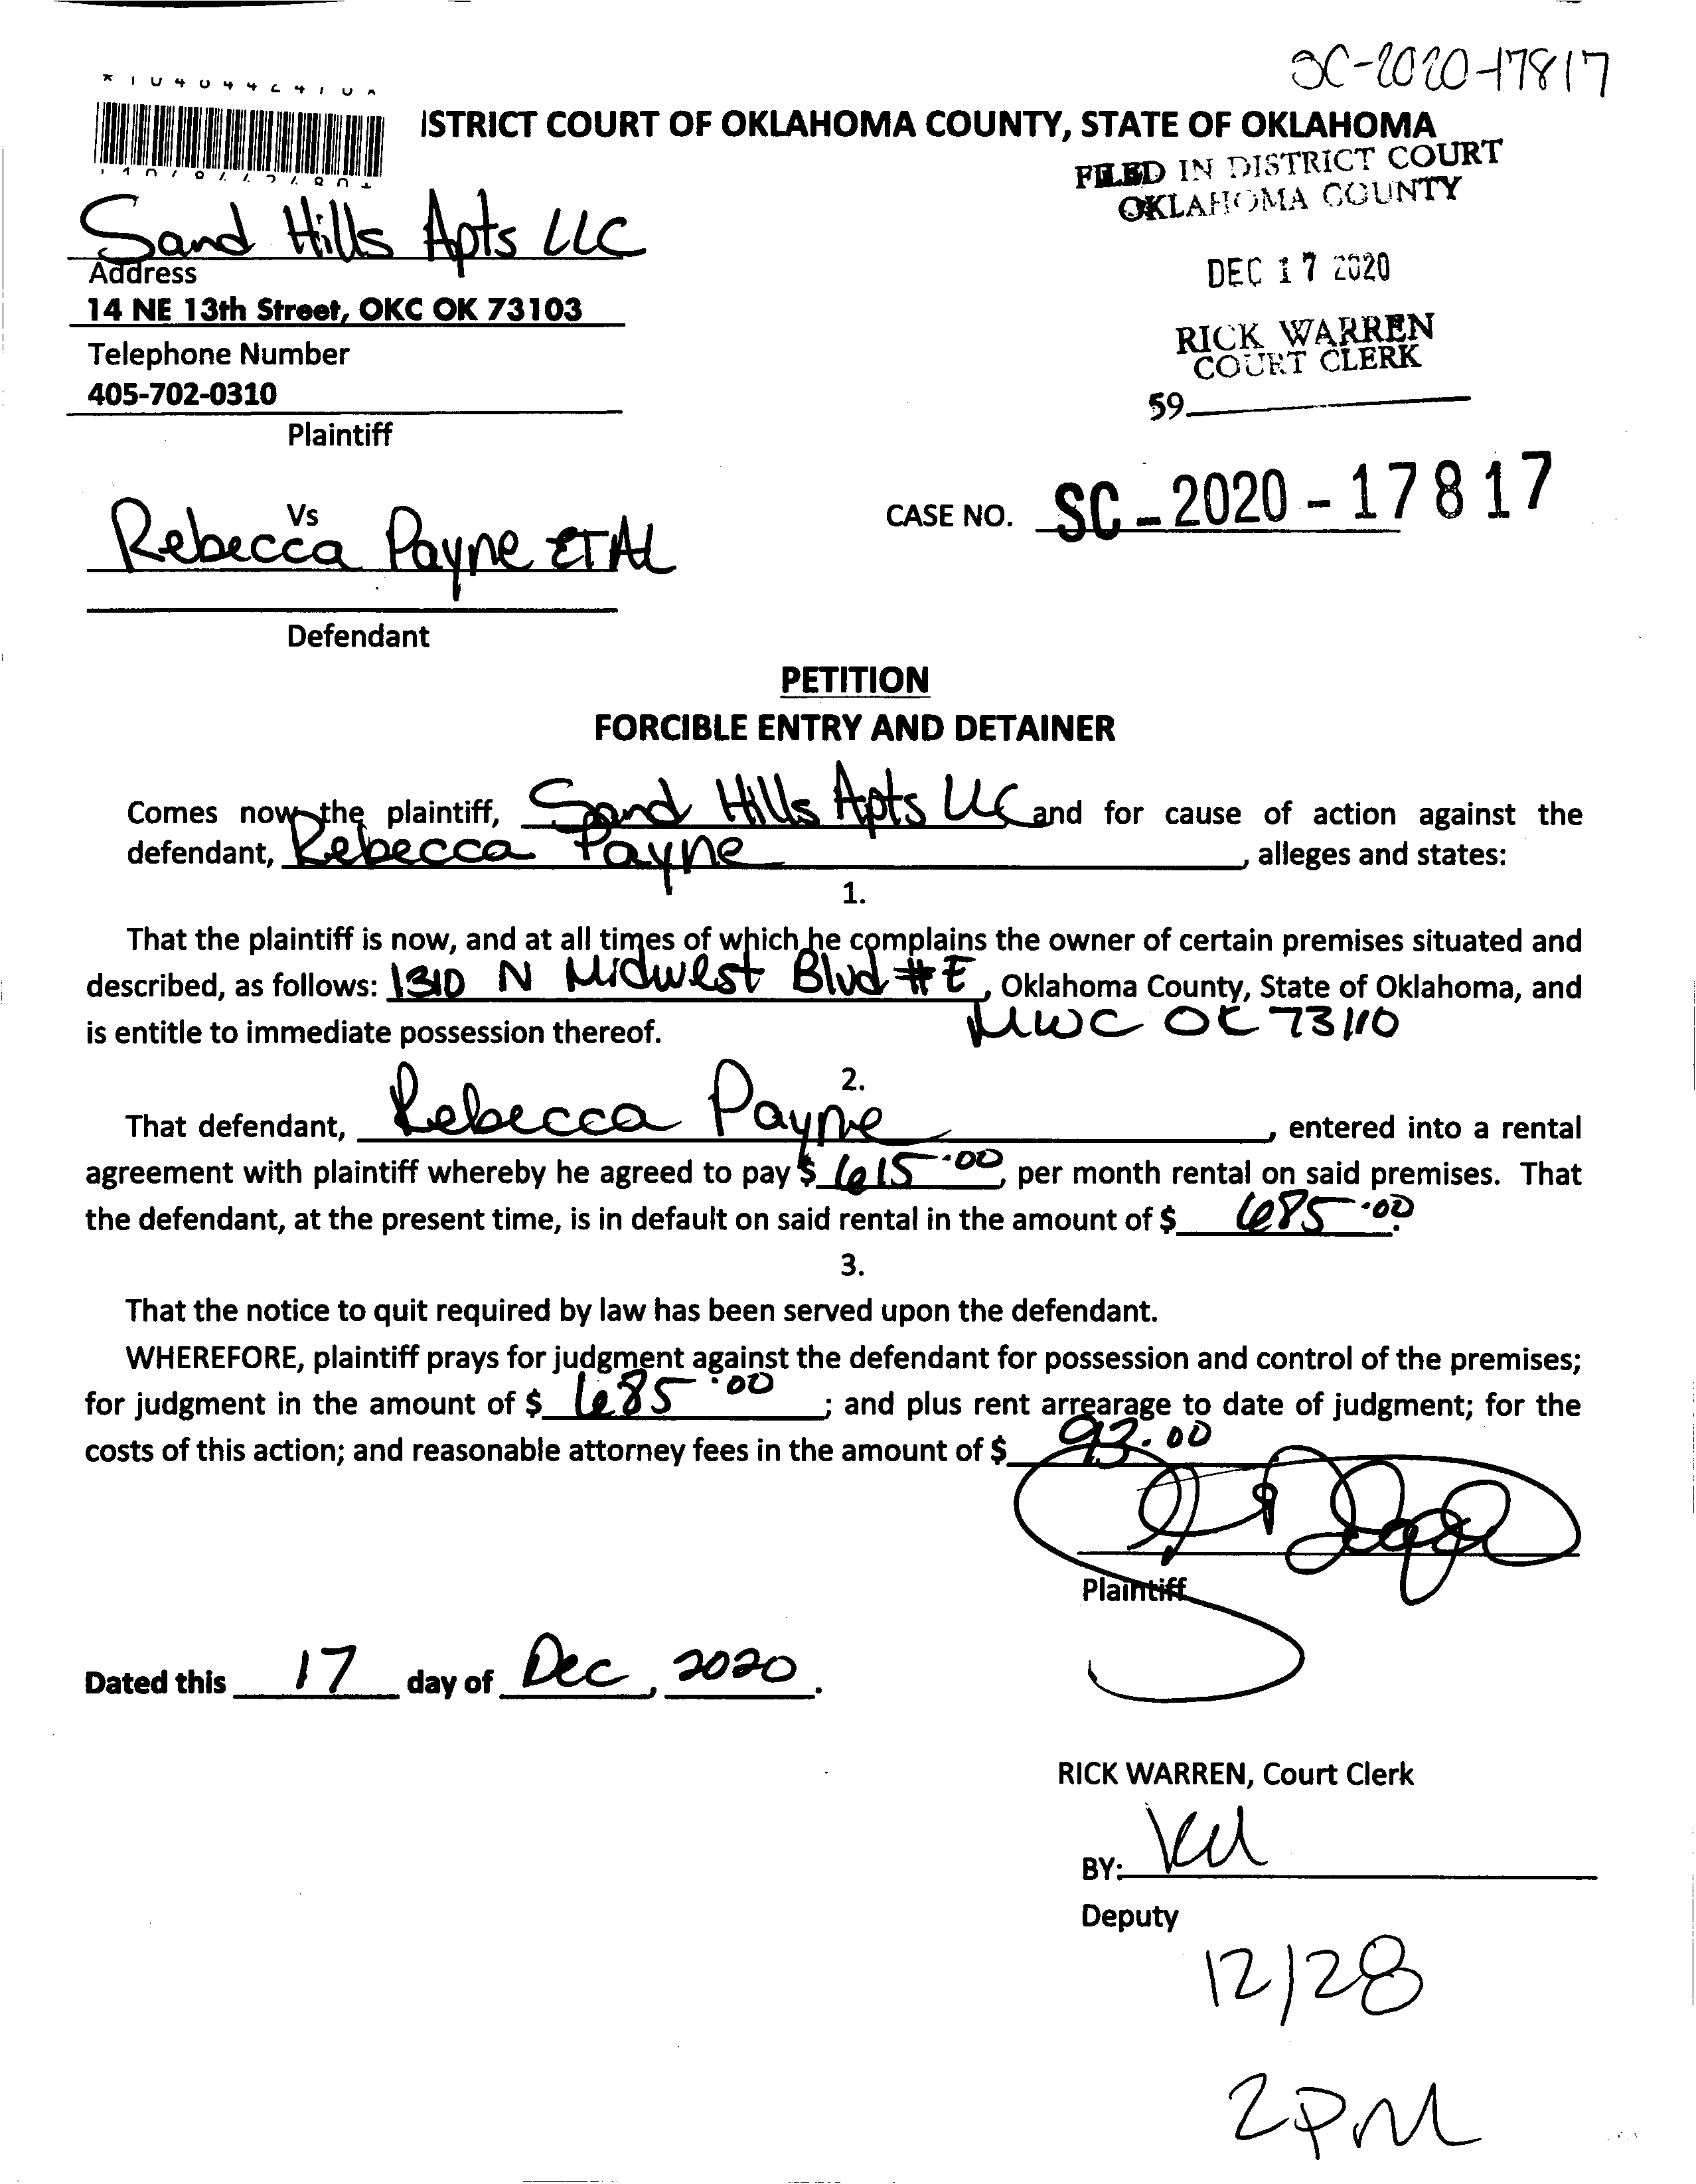 SC-2020-17817
ISTRICT COURT OF OKLAHOMA COUNTY, STATE OF OKLAHOMA
FILED IN DISTRICT COURT
OKLAHOMA COUNTY
DEC 17 2020
RICK WARREN
COURT CLERK
59
Sand Hills Apts LLC
Address
14 NE 13th Street, OKC OK 73103
Telephone Number
405-702-0310
Plaintiff
Vs
CASE NO. SC-2020-17817
Rebecca Payne ET AL
Defendant
PETITION
FORCIBLE ENTRY AND DETAINER
Comes now the plaintiff, Sand Hills Apts LLC and for cause of action against the
defendant, Rebecca Payne, alleges and states:
1.
That the plaintiff is now, and at all times of which he complains the owner of certain premises situated and
described, as follows: 1310 N Midwest Blvd #E, Oklahoma County, State of Oklahoma, and
is entitle to immediate possession thereof. MWC OK 73110
2.
That defendant, Rebecca Payne, entered into a rental
agreement with plaintiff whereby he agreed to pay $ 615.00, per month rental on said premises. That
the defendant, at the present time, is in default on said rental in the amount of $ 685.00.
3.
That the notice to quit required by law has been served upon the defendant.
WHEREFORE, plaintiff prays for judgment against the defendant for possession and control of the premises;
for judgment in the amount of $ 685.00; and plus rent arrearage to date of judgment; for the
costs of this action; and reasonable attorney fees in the amount of $ 93.00
Plaintiff
Dated this 17 day of Dec, 2020.
RICK WARREN, Court Clerk
BY:
Deputy
12/28
2PM